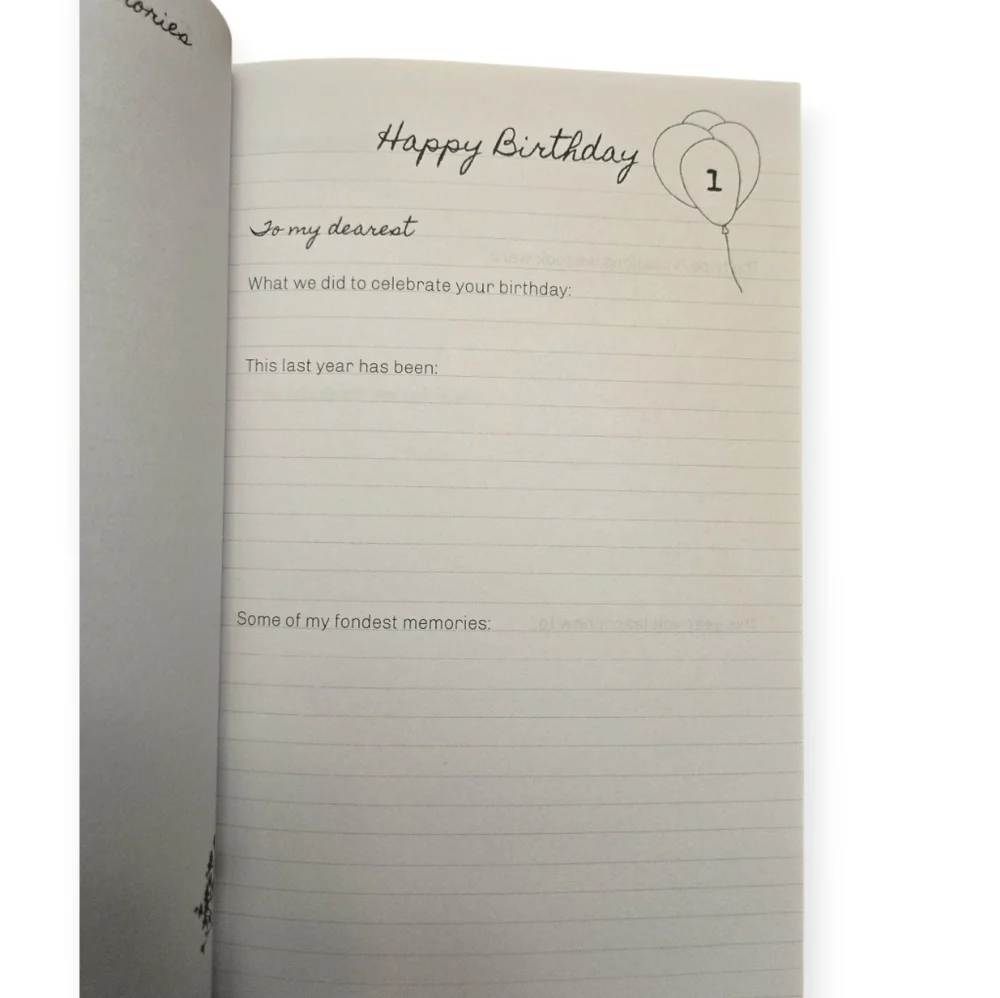 Happy Birthday
1
To my dearest
What we did to celebrate your birthday:
This last year has been:
Some of my fondest memories: